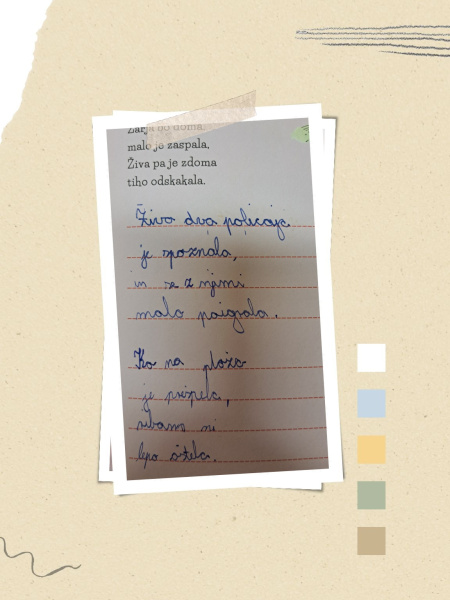 Zarja bo doma
malo je zaspala,
Živa pa je zdoma
tiho odskakala.
Živa dva policaja
je spoznala,
in se z njimi
malo poigrala.
Ko na plažo
je prispela,
ribama ni
lepo štela.